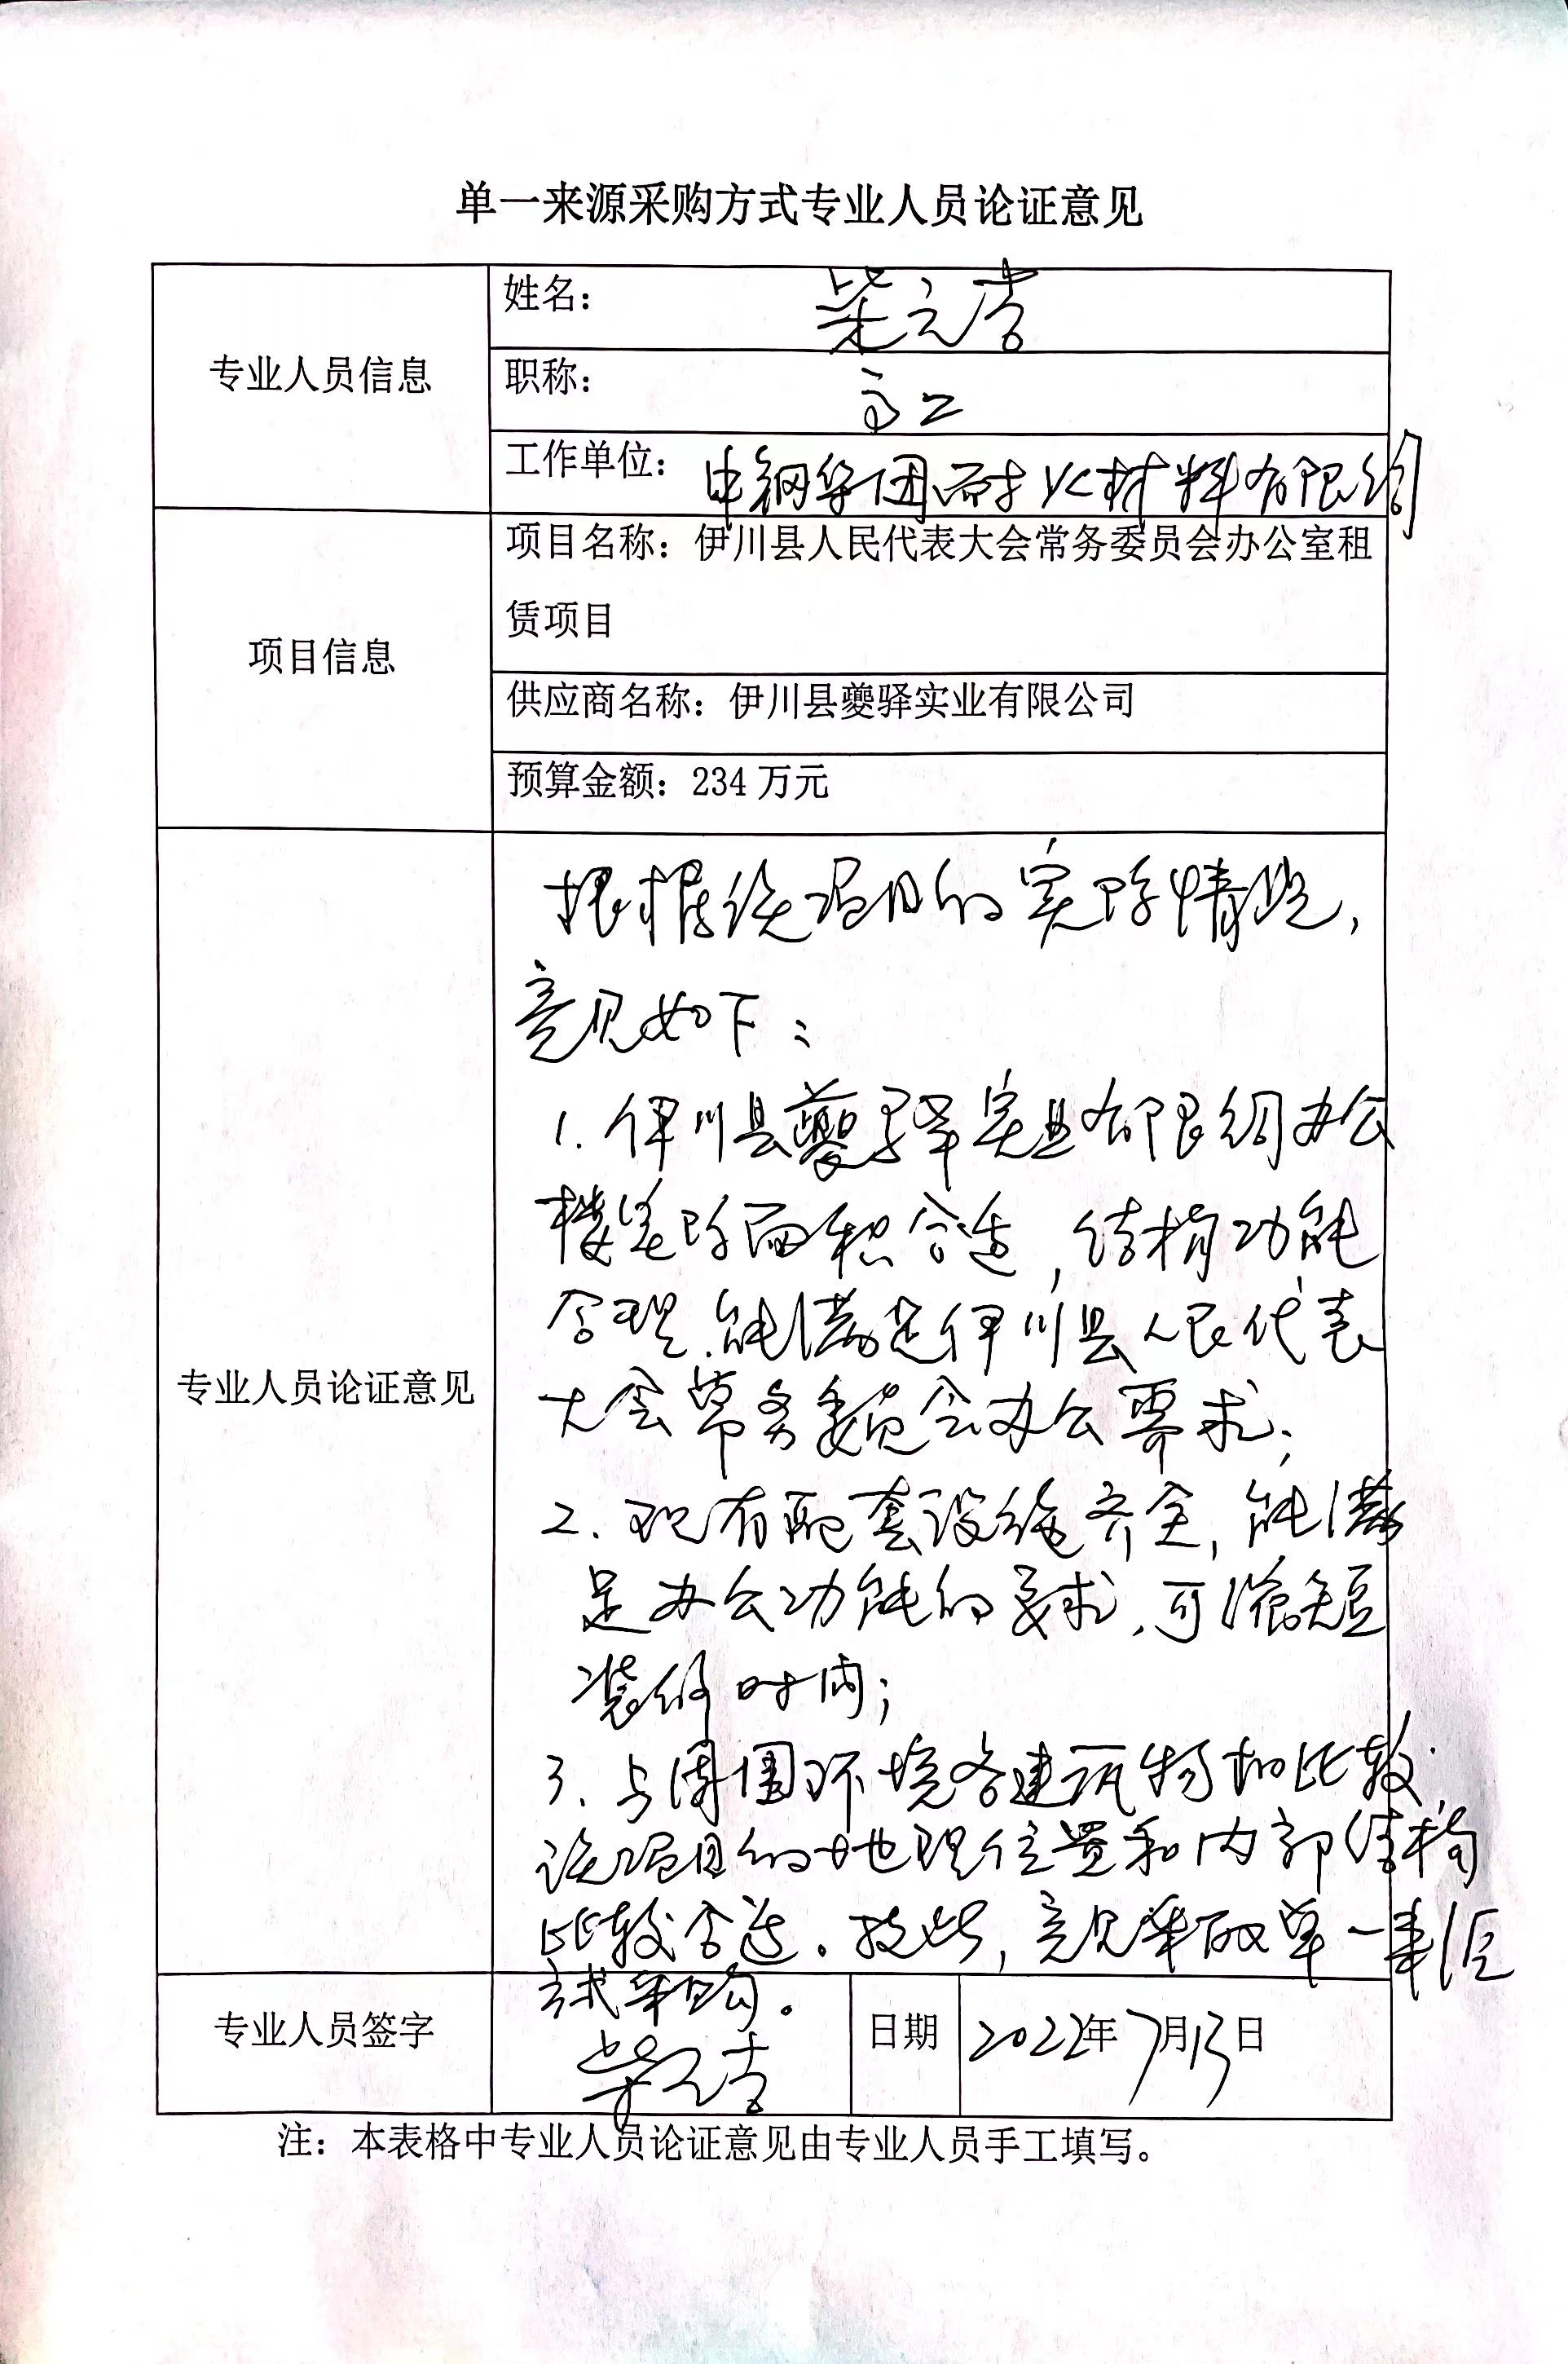 单一来源采购方式专业人员论证意见
专业人员信息
姓名：柴立
职称：高工
工作单位：中钢集团耐火材料有限公司
项目信息
项目名称：伊川县人民代表大会常务委员会办公室租
赁项目
供应商名称：伊川县夔驿实业有限公司
预算金额：234万元
专业人员论证意见
根据该项目的实际情况，
意见如下：
1.伊川县夔驿实业有限公司办公
楼实际面积合适，结构功能
合理.能满足伊川县人民代表
大会常务委员会办公要求；
2.现有配套设施齐全，能满
足办公功能的要求，可缩短
装修时间；
3.与周围环境各建筑物相比较.
该项目的地理位置和内部结构
比较合适。故此，意见采取单一来源
方式采购。
专业人员签字
柴立
日期
2022年7月13日
注：本表格中专业人员论证意见由专业人员手工填写。